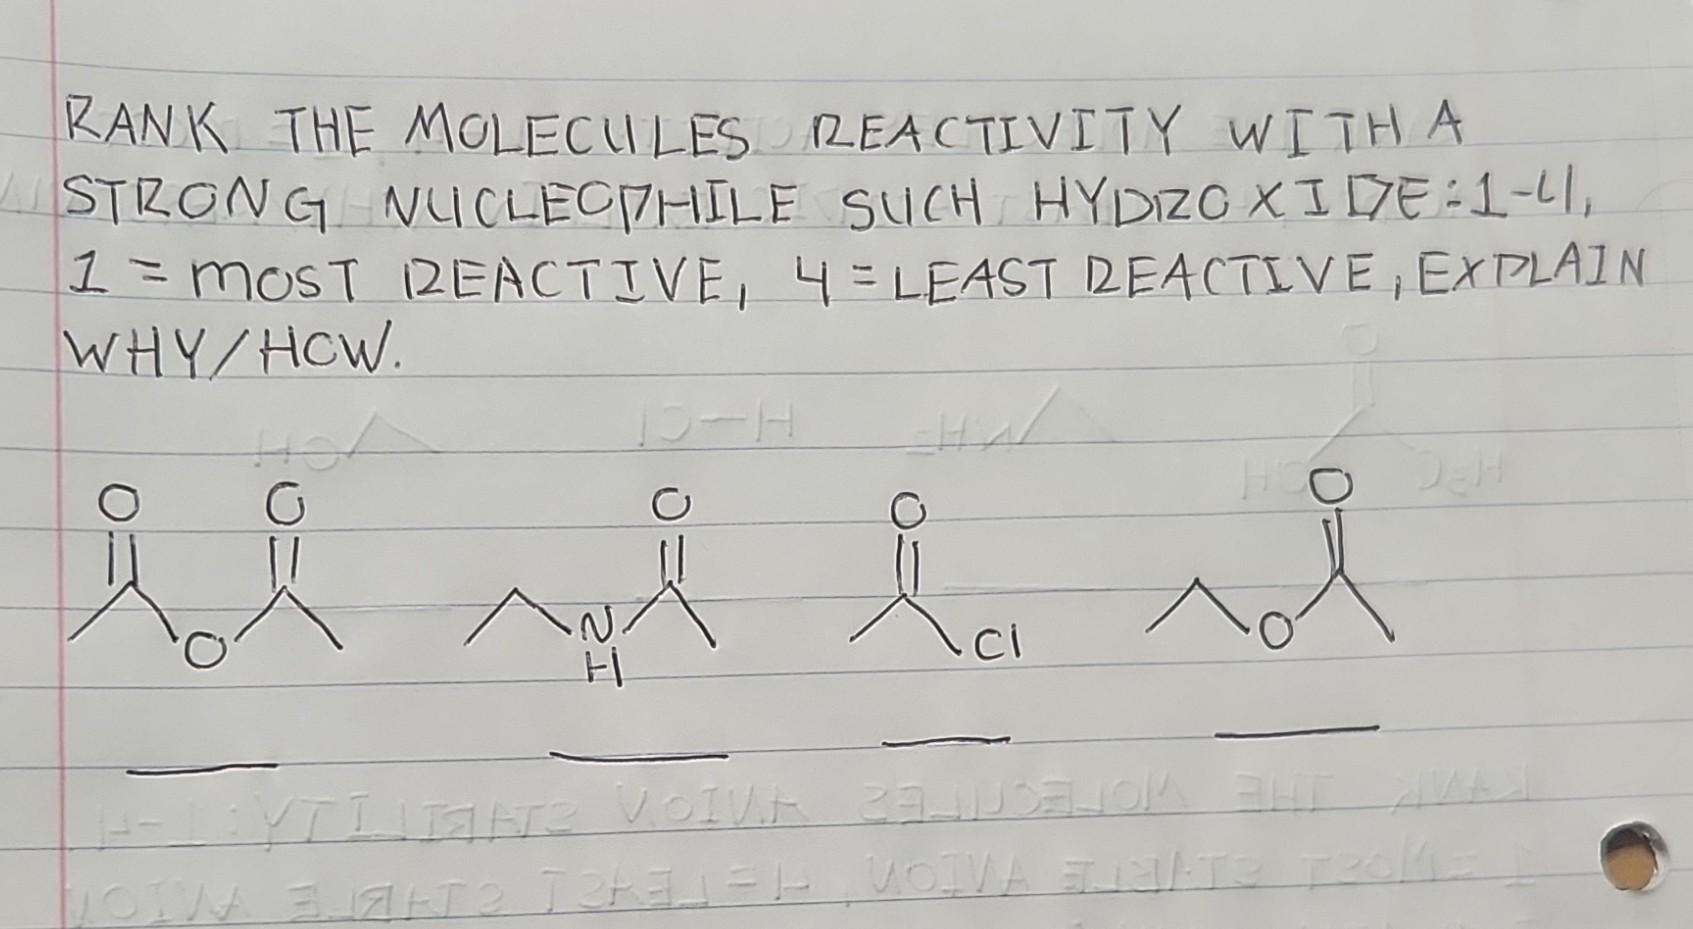 RANK THE MOLECULES REACTIVITY WITH A
STRONG NUCLEOPHILE SUCH HYDROXIDE: 1-4,
1 = MOST REACTIVE, 4 = LEAST REACTIVE, EXPLAIN
WHY/HOW.
O O O O O
O N Cl O
H